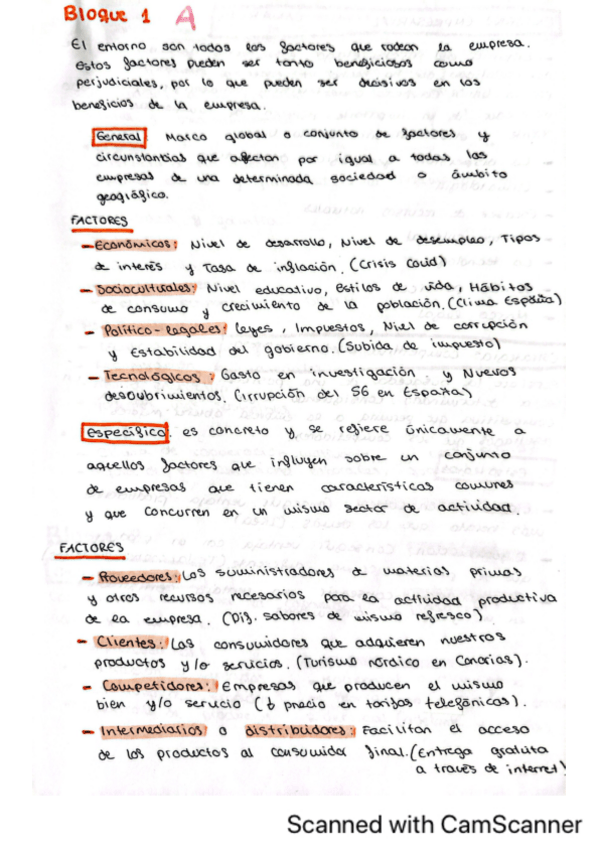 Bloque 1 A
El entorno son todos los factores que rodean la empresa.
Estos factores pueden ser tanto beneficiosos como
perjudiciales, por lo que pueden ser decisivos en los
beneficios de la empresa.
General Marco global o conjunto de factores y
circunstancias que afectan por igual a todas las
empresas de una determinada sociedad o ámbito
geográfico.
FACTORES
- Económicos: Nivel de desarrollo, Nivel de desempleo, Tipos
de interés y Tasa de inflación. (Crisis Covid)
- Socioculturales: Nivel educativo, Estilos de vida, Hábitos
de consumo y crecimiento de la población. (Clima España)
- Político-legales: leyes, Impuestos, Nivel de corrupción
y Estabilidad del gobierno. (Subida de impuesto)
- Tecnológicos: Gasto en investigación y Nuevos
descubrimientos. (Irrupción del 5G en España)
Específico. es concreto y se refiere únicamente a
aquellos factores que influyen sobre un conjunto
de empresas que tienen características comunes
y que concurren en un mismo sector de actividad
FACTORES
- Proveedores: Los suministradores de materias primas
y otros recursos necesarios para la actividad productiva
de la empresa. (Dif. sabores de mismo refresco)
- Clientes: Los consumidores que adquieren nuestros
productos y/o servicios. (Turismo nórdico en Canarias).
- Competidores: Empresas que producen el mismo
bien y/o servicio (↓ precio en tarifas telefónicas).
- Intermediarios o distribuidores: Facilitan el acceso
de los productos al consumidor final. (Entrega gratuita
a través de internet)
Scanned with CamScanner